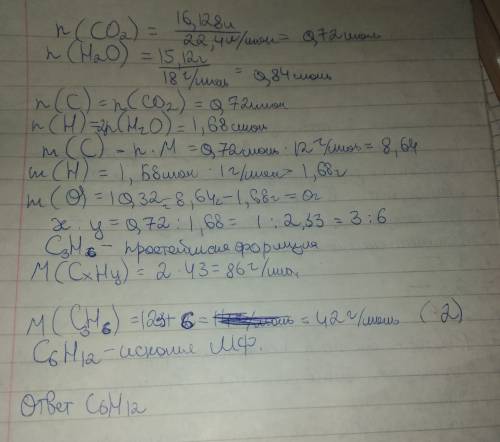 n(CO2) = 16,128л / 22,4л/моль = 0,72моль
n(H2O) = 15,12г / 18г/моль = 0,84моль
n(C) = n(CO2) = 0,72моль
n(H) = 2n(H2O) = 1,68моль
m(C) = n·M = 0,72моль · 12г/моль = 8,64
m(H) = 1,68моль · 1г/моль = 1,68г
m(O) = 10,32 - 8,64г - 1,68г = 0г
x : y = 0,72 : 1,68 = 1 : 2,33 = 3 : 6
C3H6 - простейшая формула
M(CxHy) = 2 · 43 = 86г/моль
M(C3H6) = 12·3 + 6 = 42г/моль (·2)
C6H12 - искомая МФ.
Ответ C6H12